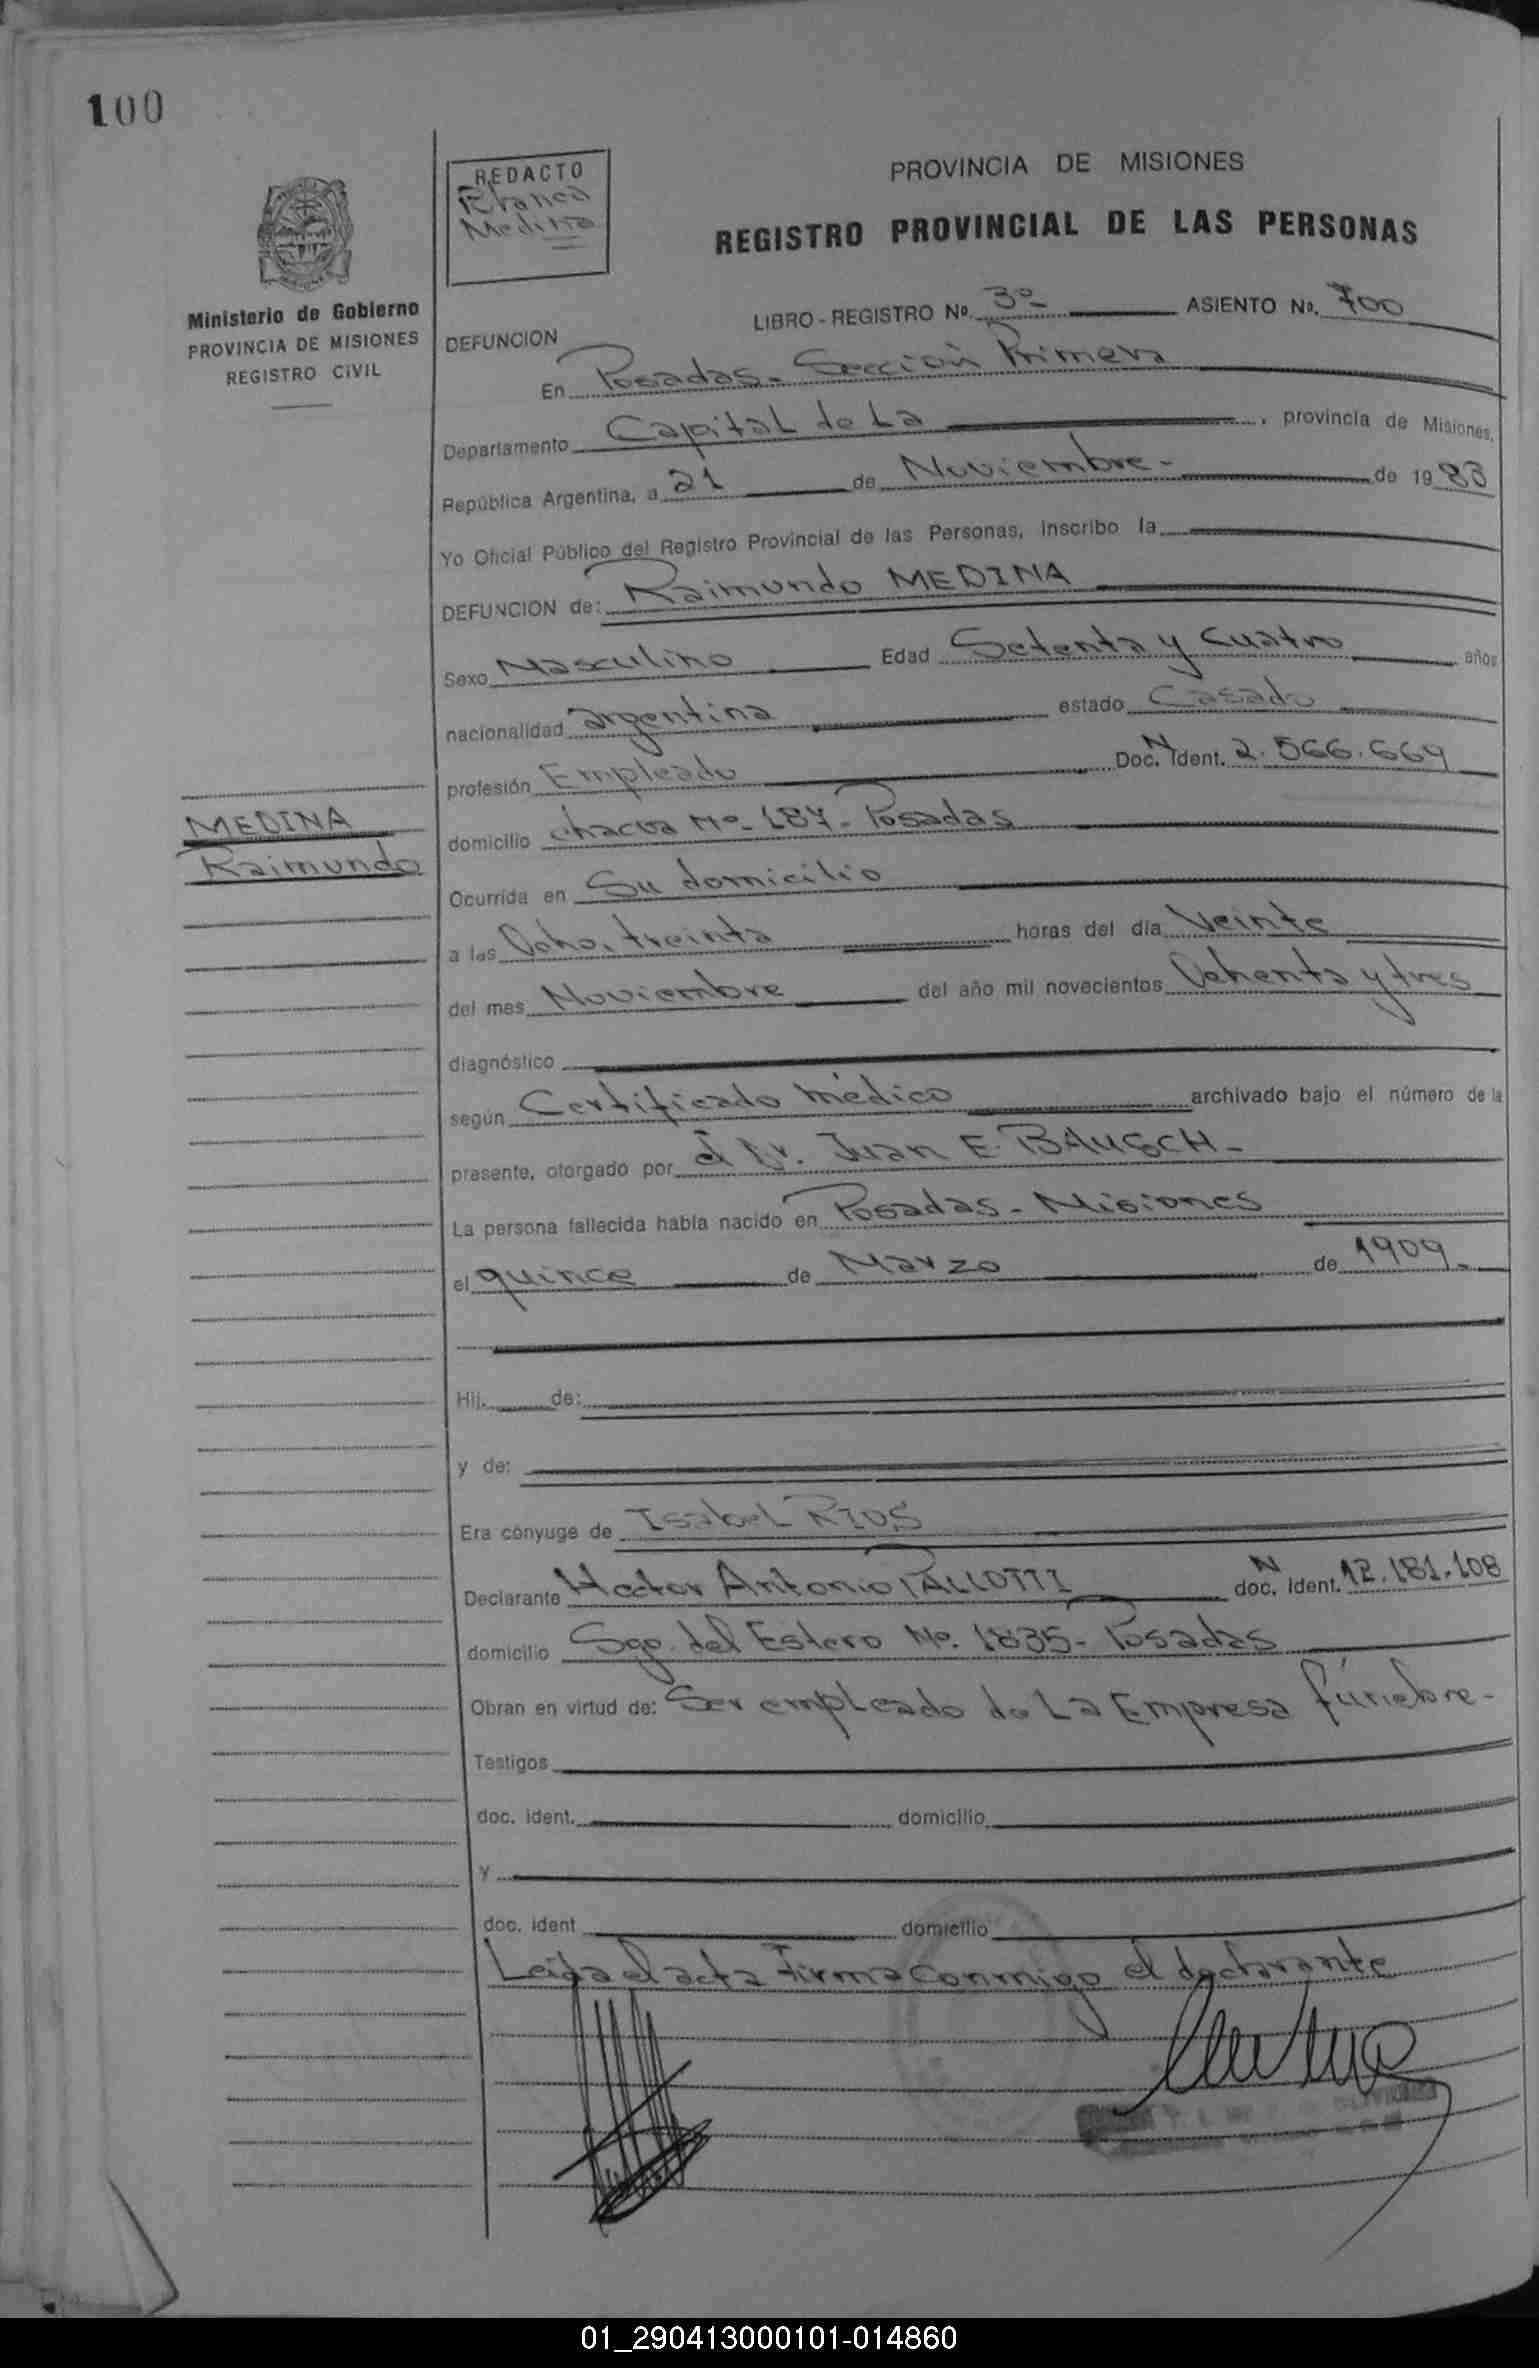 100
REDACTO
Blanca
Medina
PROVINCIA DE MISIONES
REGISTRO PROVINCIAL DE LAS PERSONAS
Ministerio de Gobierno
PROVINCIA DE MISIONES
REGISTRO CIVIL
LIBRO - REGISTRO No. 3º ASIENTO No. 700
DEFUNCION
En Posadas - Sección Primera
Departamento Capital de La , provincia de Misiones,
República Argentina, a 21 de Noviembre - de 1983
Yo Oficial Público del Registro Provincial de las Personas, inscribo la
DEFUNCION de: Raimundo MEDINA
Sexo Masculino Edad Setenta y Cuatro años
nacionalidad argentina estado Casado
profesión Empleado Doc. N Ident. 2.566.669
MEDINA
Raimundo
domicilio chacra Nº 187 - Posadas
Ocurrida en Su domicilio
a las Ocho, treinta horas del día Veinte
del mes Noviembre del año mil novecientos Ochenta y tres
diagnóstico
según Certificado médico archivado bajo el número de la
presente, otorgado por el Dr. Juan E. BAUSCH -
La persona fallecida había nacido en Posadas - Misiones
el quince de Marzo de 1909.
Hij. de:
y de:
Era cónyuge de Isabel RIOS
Declarante Hector Antonio PALLOTTI doc. N ident. 12.181.108
domicilio Sgo. del Estero No. 1835 - Posadas
Obran en virtud de: Ser empleado de La Empresa fúnebre -
Testigos
doc. ident. domicilio
y
doc. ident domicilio
Leida el acta Firma conmigo el declarante
01_290413000101-014860